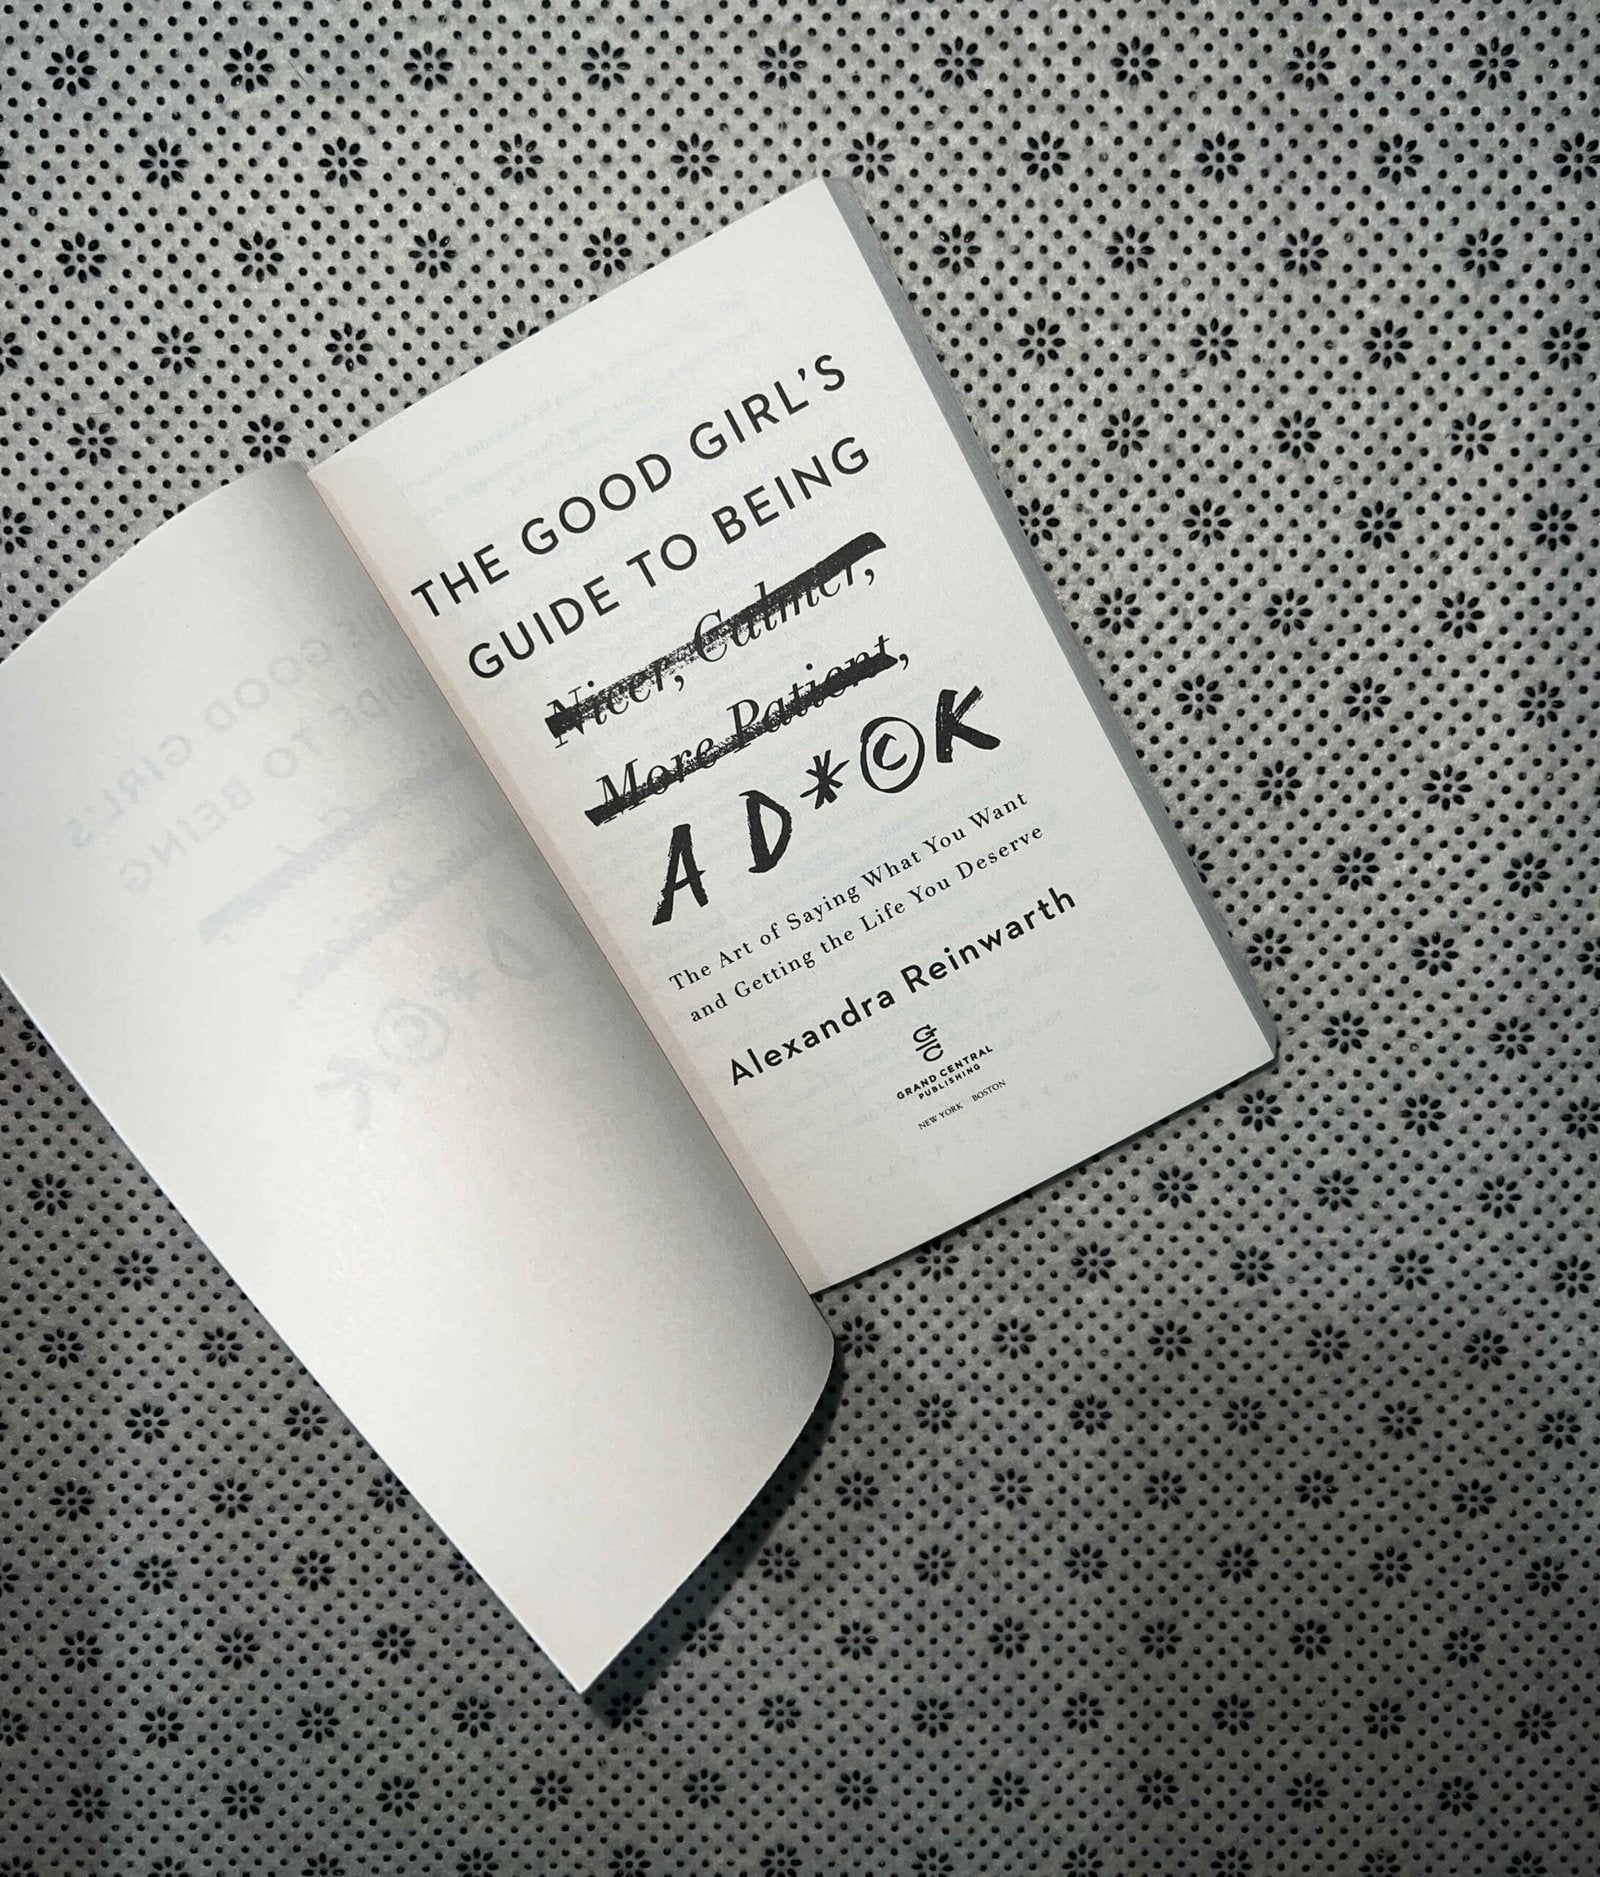 THE GOOD GIRL'S
GUIDE TO BEING
Nicer, Calmer,
More Patient,
A D*©K
The Art of Saying What You Want
and Getting the Life You Deserve
Alexandra Reinwarth
GC
GRAND CENTRAL
PUBLISHING
NEW YORK BOSTON